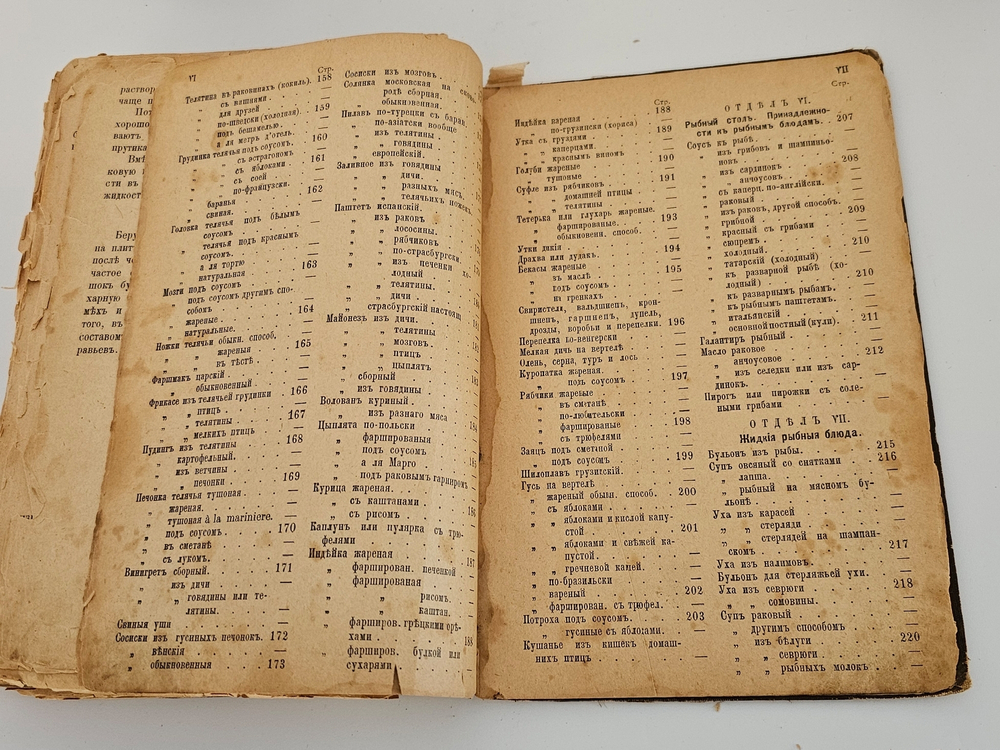 раствор
чаще п
Пот
хорошо
ваютъ
прутика
Вмѣ
ковую
сти въ
жидкост
Беру
на плит
послѣ че
частое
шокъ бу
харную
мѣхъ и
того, въ
составом
равьевъ.
VI
Стр.
Телятина въ раковинахъ (кокиль). 158
„ съ вишнями. —
„ для друзей —
„ по-шведски (холодная). 159
„ подъ бешамелью. —
„ а ля метръ д'отель. —
Грудинка телячья подъ соусомъ. 160
„ „ съ эстрагономъ —
„ „ съ яблоками 161
„ „ съ соей —
„ „ по-французски. —
„ баранья 162
„ свиная. —
Головка телячья подъ бѣлымъ
соусомъ —
„ телячья подъ краснымъ
соусомъ. —
„ а ля тортю —
„ натуральная 163
Мозги подъ соусомъ —
„ подъ соусомъ другимъ спо-
собомъ —
„ жареные. 164
„ натуральные. —
Ножки телячьи обыкн. способ. —
„ „ жареныя 165
„ „ въ тѣстѣ —
Фаршмакъ царскій —
„ обыкновенный —
Фрикасе изъ телячьей грудинки 166
„ „ птицъ —
„ „ телятины 167
„ „ мелкихъ птицъ —
Пудингъ изъ телятины 168
„ картофельный. —
„ изъ ветчины —
„ „ печонки 169
Печонка телячья тушоная. —
„ жареная. —
„ тушоная à la mariniere. —
„ подъ соусомъ. 170
„ въ сметанѣ —
„ съ лукомъ. —
Винигретъ сборный. 171
„ изъ дичи —
„ „ говядины или те-
лятины. —
Свиныя уша —
Сосиски изъ гусиныхъ печонокъ. 172
„ вѣнскія —
„ обыкновенныя 173
Сосиски изъ мозговъ.
Солянка московская на
„ родѣ сборная.
„ обыкновенная.
Пилавъ по-турецки съ баран.
„ по-азіатски вообще
„ изъ телятины
„ „ говядины
„ европейскій.
Заливное изъ говядины
„ „ дичи.
„ „ разныхъ мясъ
„ „ телячьихъ ножекъ
Паштетъ испанскій.
„ изъ раковъ
„ „ лососины.
„ „ рябчиковъ
„ „ по-страсбургски
„ „ изъ печенки хо-
лодный
„ „ телятины.
„ „ дичи
„ страсбургскій настоящ.
Майонезъ изъ дичи.
„ „ телятины
„ „ мозговъ.
„ „ птицъ
„ „ цыплятъ
„ сборный
„ изъ говядины
Волованъ куриный.
„ изъ разнаго мяса
Цыплята по-польски
„ фаршированыя
„ подъ соусомъ
„ а ля Марго
„ подъ раковымъ гарниромъ
Курица жареная.
„ съ каштанами.
„ съ рисомъ.
Каплунъ или пулярка съ трю-
фелями
Индѣйка жареная
„ фарширован. печенкой
„ фаршированая
„ „ рисомъ.
„ „ каштан.
„ фарширов. грѣцкими орѣ-
хами
„ фарширов. булкой или
сухарями
VII
Стр.
Индѣйка вареная 188
„ по-грузински (хориса) —
Утка съ груздями 189
„ „ каперцами. —
„ „ краснымъ виномъ —
Голуби жареные 190
„ тушоные —
Суфле изъ рябчиковъ 191
„ „ домашней птицы —
„ „ телятины —
Тетерька или глухарь жареные. —
„ „ фаршированые. 193
„ „ обыкновенн. способ. —
Утки дикія —
Драхва или дудакъ. 194
Бекасы жареные —
„ въ маслѣ 195
„ подъ соусомъ —
„ на гренкахъ —
Свиристели, вальдшнепъ, крон-
шнепъ, гаршнепъ, дупель,
дрозды, воробьи и перепелки. 196
Перепелка по-венгерски —
Мелкая дичь на вертелѣ —
Олень, серна, туръ и лось —
Куропатка жареная. —
„ подъ соусомъ. 197
Рябчики жареные —
„ въ сметанѣ —
„ по-любительски —
„ фаршированые 198
„ съ трюфелями —
Заяцъ подъ сметаной —
„ подъ соусомъ 199
Шилоплавъ грузинскій. —
Гусь на вертелѣ —
„ жареный обыкн. способ. 200
„ съ яблоками —
„ „ яблоками и кислой капу-
стой 201
„ „ яблоками и свѣжей ка-
пустой. —
„ „ гречневой кашей. —
„ по-бразильски —
„ вареный 202
„ фарширован. съ трюфел. —
Потроха подъ соусомъ. 203
„ гусиные съ яблоками. —
Кушанье изъ кишекъ домаш-
нихъ птицъ —
Стр.
ОТДѢЛЪ VI.
Рыбный столъ. Принадлежно-
сти къ рыбнымъ блюдамъ. 207
Соусъ къ рыбѣ. —
„ изъ грибовъ и шампиньо-
новъ —
„ изъ сардинокъ 208
„ „ анчоусовъ —
„ съ каперц. по-англійски. —
„ раковый —
„ изъ раковъ, другой способъ. —
„ грибной 209
„ красный съ грибами —
„ сюпремъ —
„ холодный. 210
„ татарскій (холодный) —
„ къ разварной рыбѣ (хо-
лодный) —
„ къ разварнымъ рыбамъ. 210
„ къ рыбнымъ паштетамъ. —
„ итальянскій —
„ основной постный (кули). 211
Галантиръ рыбный —
Масло раковое —
„ анчоусовое 212
„ изъ селедки или изъ сар-
динокъ. —
Пирогъ или пирожки съ соле-
ными грибами —
ОТДѢЛЪ VII.
Жидкія рыбныя блюда.
Бульонъ изъ рыбы. 215
Супъ овсяный со снятками 216
„ лапша. —
„ рыбный на мясномъ бу-
льонѣ —
Уха изъ карасей —
„ „ стерляди —
„ „ стерлядей на шампан-
скомъ 217
Уха изъ налимовъ. —
Бульонъ для стерляжьей ухи. —
Уха изъ севрюги 218
„ „ сомовины. —
Супъ раковый —
„ другимъ способомъ —
„ изъ бѣлуги 220
„ „ севрюги —
„ „ рыбныхъ молокъ —